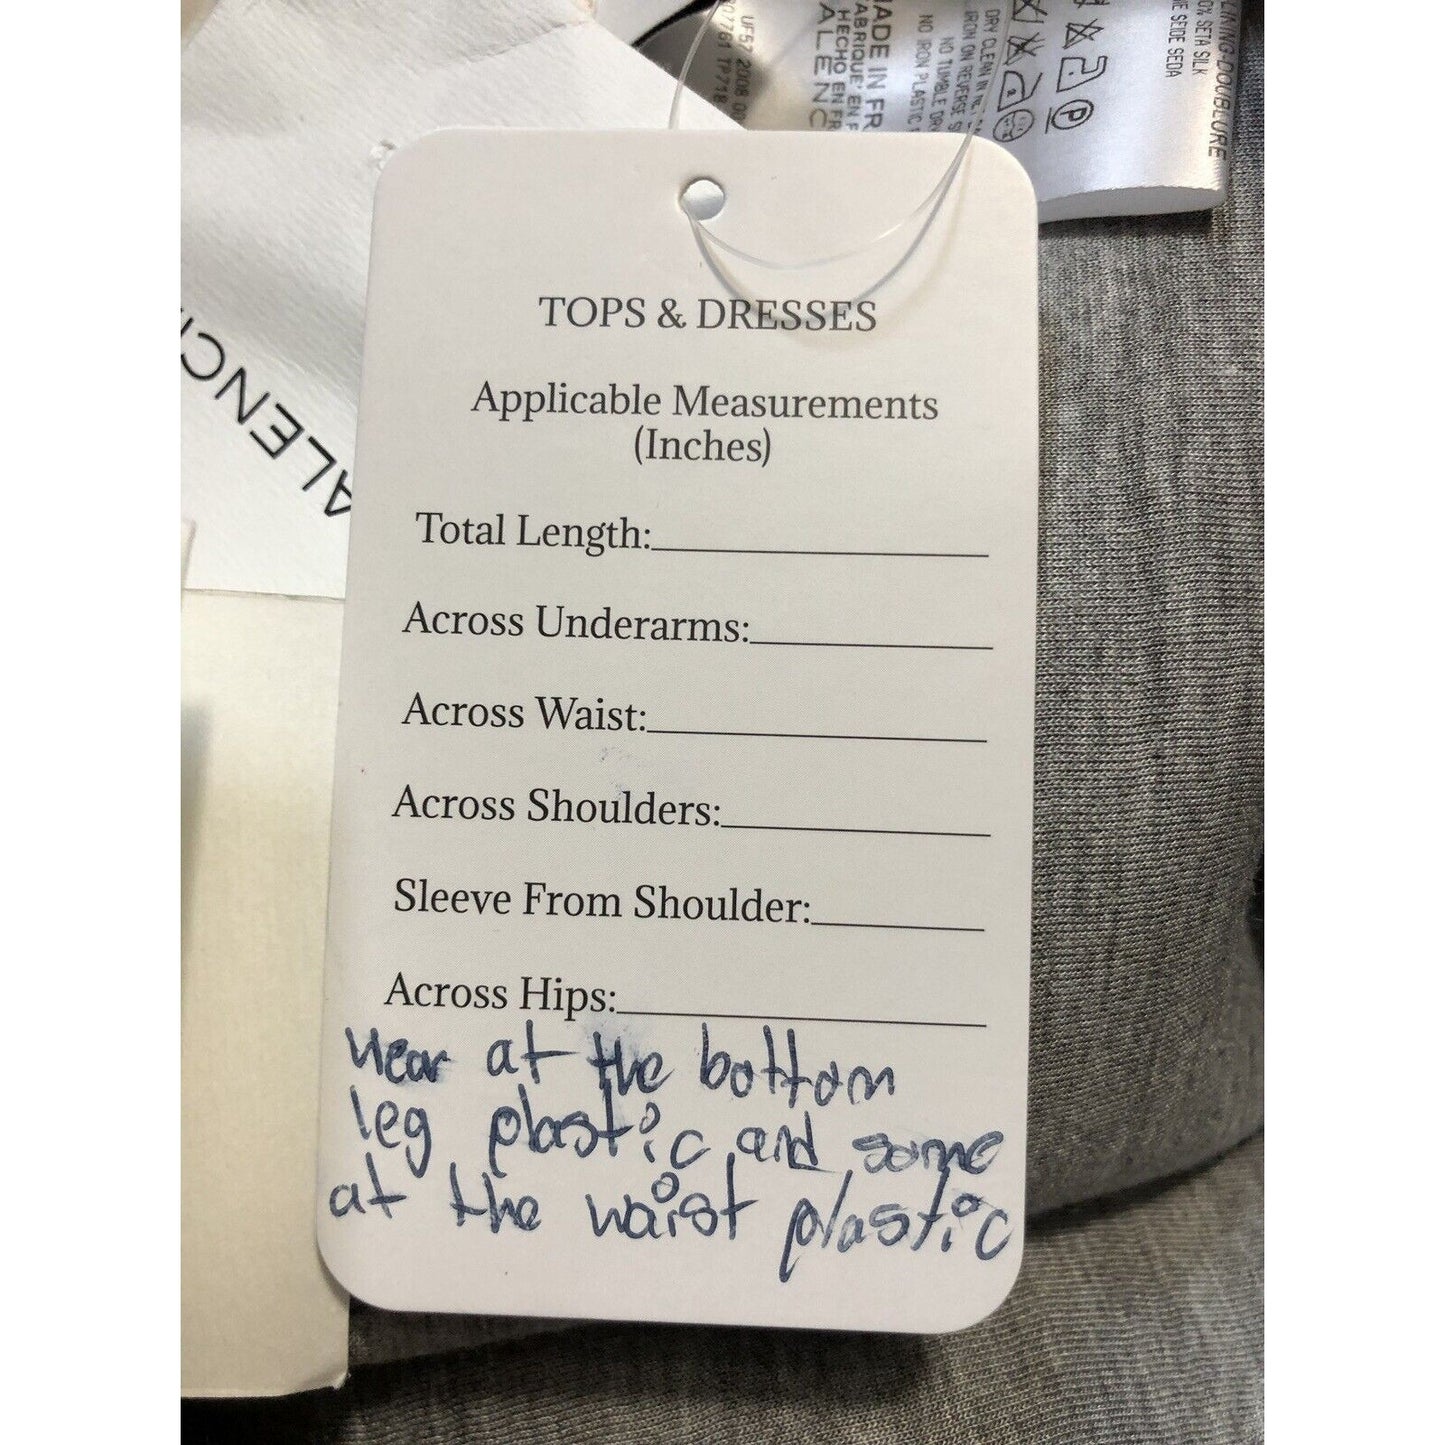 UF57 2008
07761 TP718
MADE IN FR
FABRIQUE' EN F
HECHO EN FR
ALENC
DRY CLEAN IN
IRON ON REVERSE S
NO TUMBLE DRY
NO IRON PLASTIC
P
LINING-DOUBLURE
0% SETA SILK
ME SEIDE SEDA
ALENCI
TOPS & DRESSES
Applicable Measurements
(Inches)
Total Length:
Across Underarms:
Across Waist:
Across Shoulders:
Sleeve From Shoulder:
Across Hips:
wear at the bottom
leg plastic and some
at the waist plastic